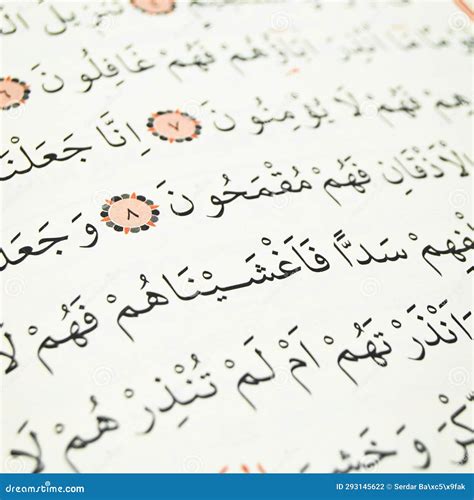 تَنْزِيلَ
اٰبَٓاؤُهُمْ فَهُمْ غَافِلُونَ ٦
هِمْ فَهُمْ لَا يُؤْمِنُونَ ٧ اِنَّا جَعَلْنَا
لْاَذْقَانِ فَهُمْ مُقْمَحُونَ ٨ وَجَعَلْ
لْفِهِمْ سَدًّا فَاَغْشَيْنَاهُمْ فَهُمْ لَا
ءَاَنْذَرْتَهُمْ اَمْ لَمْ تُنْذِرْهُمْ
كْرَ وَخَشِيَ
dreamstime.com ID 293145622 © Serdar Ba\xc5\x9fak